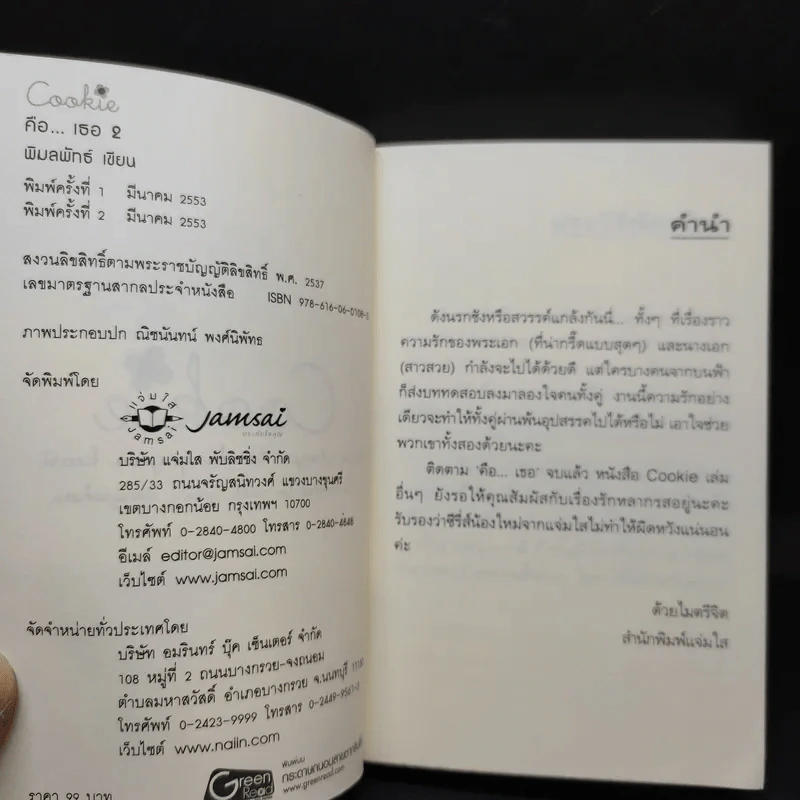 Cookie
คือ... เธอ 2
พิมลพัทธ์ เขียน
พิมพ์ครั้งที่ 1 มีนาคม 2553
พิมพ์ครั้งที่ 2 มีนาคม 2553
สงวนลิขสิทธิ์ตามพระราชบัญญัติลิขสิทธิ์ พ.ศ. 2537
เลขมาตรฐานสากลประจำหนังสือ ISBN
ภาพประกอบปก ณิชนันทน์ พงศ์นิพัทธ
จัดพิมพ์โดย
แจ่มใส
Jamsai
Jamsai
บริษัท แจ่มใส พับลิชชิ่ง จำกัด
285/33 ถนนจรัญสนิทวงศ์ แขวงบางขุนศรี
เขตบางกอกน้อย กรุงเทพฯ 10700
โทรศัพท์ 0-2840-4800 โทรสาร 0-2840-4848
อีเมล์ editor@jamsai.com
เว็บไซต์ www.jamsai.com
จัดจำหน่ายทั่วประเทศโดย
บริษัท อมรินทร์ บุ๊ค เซ็นเตอร์ จำกัด
108 หมู่ที่ 2 ถนนบางกรวย-จงถนอม
ตำบลมหาสวัสดิ์ อำเภอบางกรวย จ.นนทบุรี
โทรศัพท์ 0-2423-9999 โทรสาร
เว็บไซต์ www.naiin.com
ราคา 99 บาท
Green Read
พิมพ์บน
กระดาษถนอมสายตา
www.greenread.com
คำนำ
ดังนรกชังหรือสวรรค์แกล้งกันนี่... ทั้งๆ ที่เรื่องราว
ความรักของพระเอก (ที่น่ากรี๊ดแบบสุดๆ) และนางเอก
(สาวสวย) กำลังจะไปได้ด้วยดี แต่ใครบางคนจากบนฟ้า
ก็ส่งบททดสอบลงมาลองใจคนทั้งคู่ งานนี้ความรักอย่าง
เดียวจะทำให้ทั้งคู่ผ่านพ้นอุปสรรคไปได้หรือไม่ เอาใจช่วย
พวกเขาทั้งสองด้วยนะคะ
ติดตาม 'คือ... เธอ' จบแล้ว หนังสือ Cookie เล่ม
อื่นๆ ยังรอให้คุณสัมผัสกับเรื่องรักหลากรสอยู่นะคะ
รับรองว่าซีรี่ส์น้องใหม่จากแจ่มใสไม่ทำให้ผิดหวังแน่นอน
ค่ะ
ด้วยไมตรีจิต
สำนักพิมพ์แจ่มใส